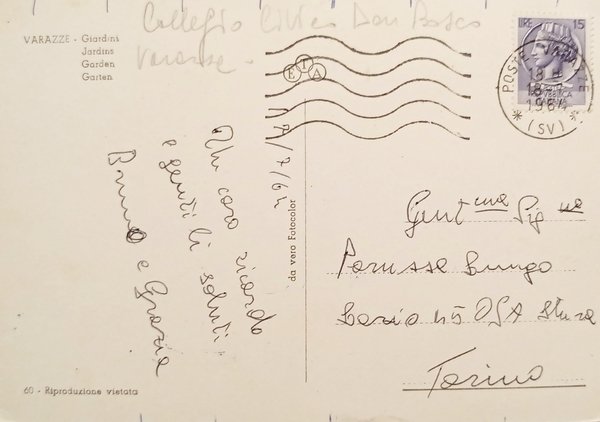 Collegio Civico Don Bosco
Varazze -
VARAZZE - Giardini
Jardins
Garden
Garten
LIRE 15
POSTE VARAZZE
18
1964
* (SV) *
ETA
17/7/64
Un caro ricordo
e gentili saluti
Bruno e Grazia
da vero Fotocolor
Gent.ma Sig.na
Lungo
45
Torino
60 - Riproduzione vietata